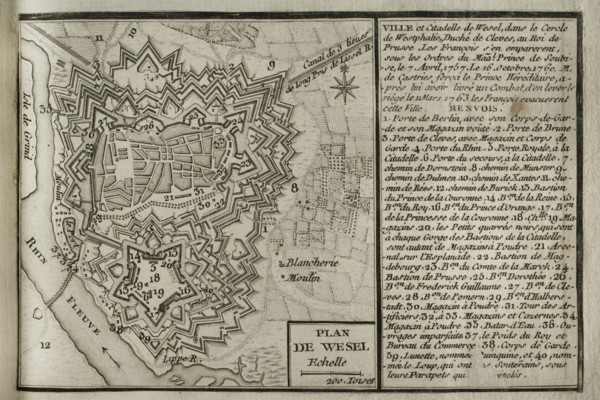 VILLE et Citadelle de Wesel, dans le Cercle
de Westphalie, Duché de Cleves, au Roi de
Prusse. Les François s'en emparerent,
sous les Ordres du Maãl Prince de Soubi-
se, le 7. Avril, 1757. Le 16. Octobre, 1760. M.
de Castries força le Prince Héréditaire, a-
près lui avoir livré un Combat, d'en lever le
siège. le 11 Mars 1763 les François evacuerent
cette Ville.
RENVOIS.
1. Porte de Berlin, avec son Corps-de-Gar-
de et son Magazin voûté. 2. Porte de Brune
3. Porte de Cleves, avec Magazin et Corps de
Garde. 4. Porte du Rhin. 5. Porte Royale, à la
Citadelle. 6. Porte du secours, à la Citadelle. 7.
chemin de Dornstein. 8. chemin de Munster. 9.
chemin de Dulmen. 10. chemin de Xantes. 11. che-
min de Rées. 12. chemin de Burick. 13. Bastion
du Prince de la Couronne. 14. Bon. de la Reine. 15.
Bon. du Roy. 16. Bon. du Prince d'Orange. 17. Bon.
de la Princesse de la Couronne. 18. 19. Ma-
gazins. 20. les Petits quarrés noirs, qui sont
à chaque Gorge des Bastions de la Citadelle,
sont autant de Magazins à Poudre. 21. Arse-
nal, sur l'Esplanade. 22. Bastion de Mag-
debourg. 23. Bon. du Comte de la Marck. 24.
Bastion de Prusse. 25. Bon. Dorothée. 26.
Bon. de Frederick Guillaume. 27. Bon. de Cle-
ves. 28. Bon. de Pomern. 29. Bon. d'Halbers-
tadt. 30. Magazin à Poudre. 31. Tour des Ar-
tificiers. 32, à 33. Magazins et Cazernes. 34.
Magazin à Poudre. 35. Batar-d'Eau. 36. Ou-
vrages imparfaits. 37. le Poids du Roy et
Bureau du Commerce. 38. Corps de Garde.
39. Lunette, nommée et 40, nom-
mée le Loup, qui ont Souterains, sous
leurs Parapets qui
Canal de 3 lieues
de long Pris de Lissel R.
Isle de Grind
Moulin
RHIN
FLEUVE
Blancherie
Moulin
Lippe R.
PLAN
DE WESEL
Echelle
200. Toises